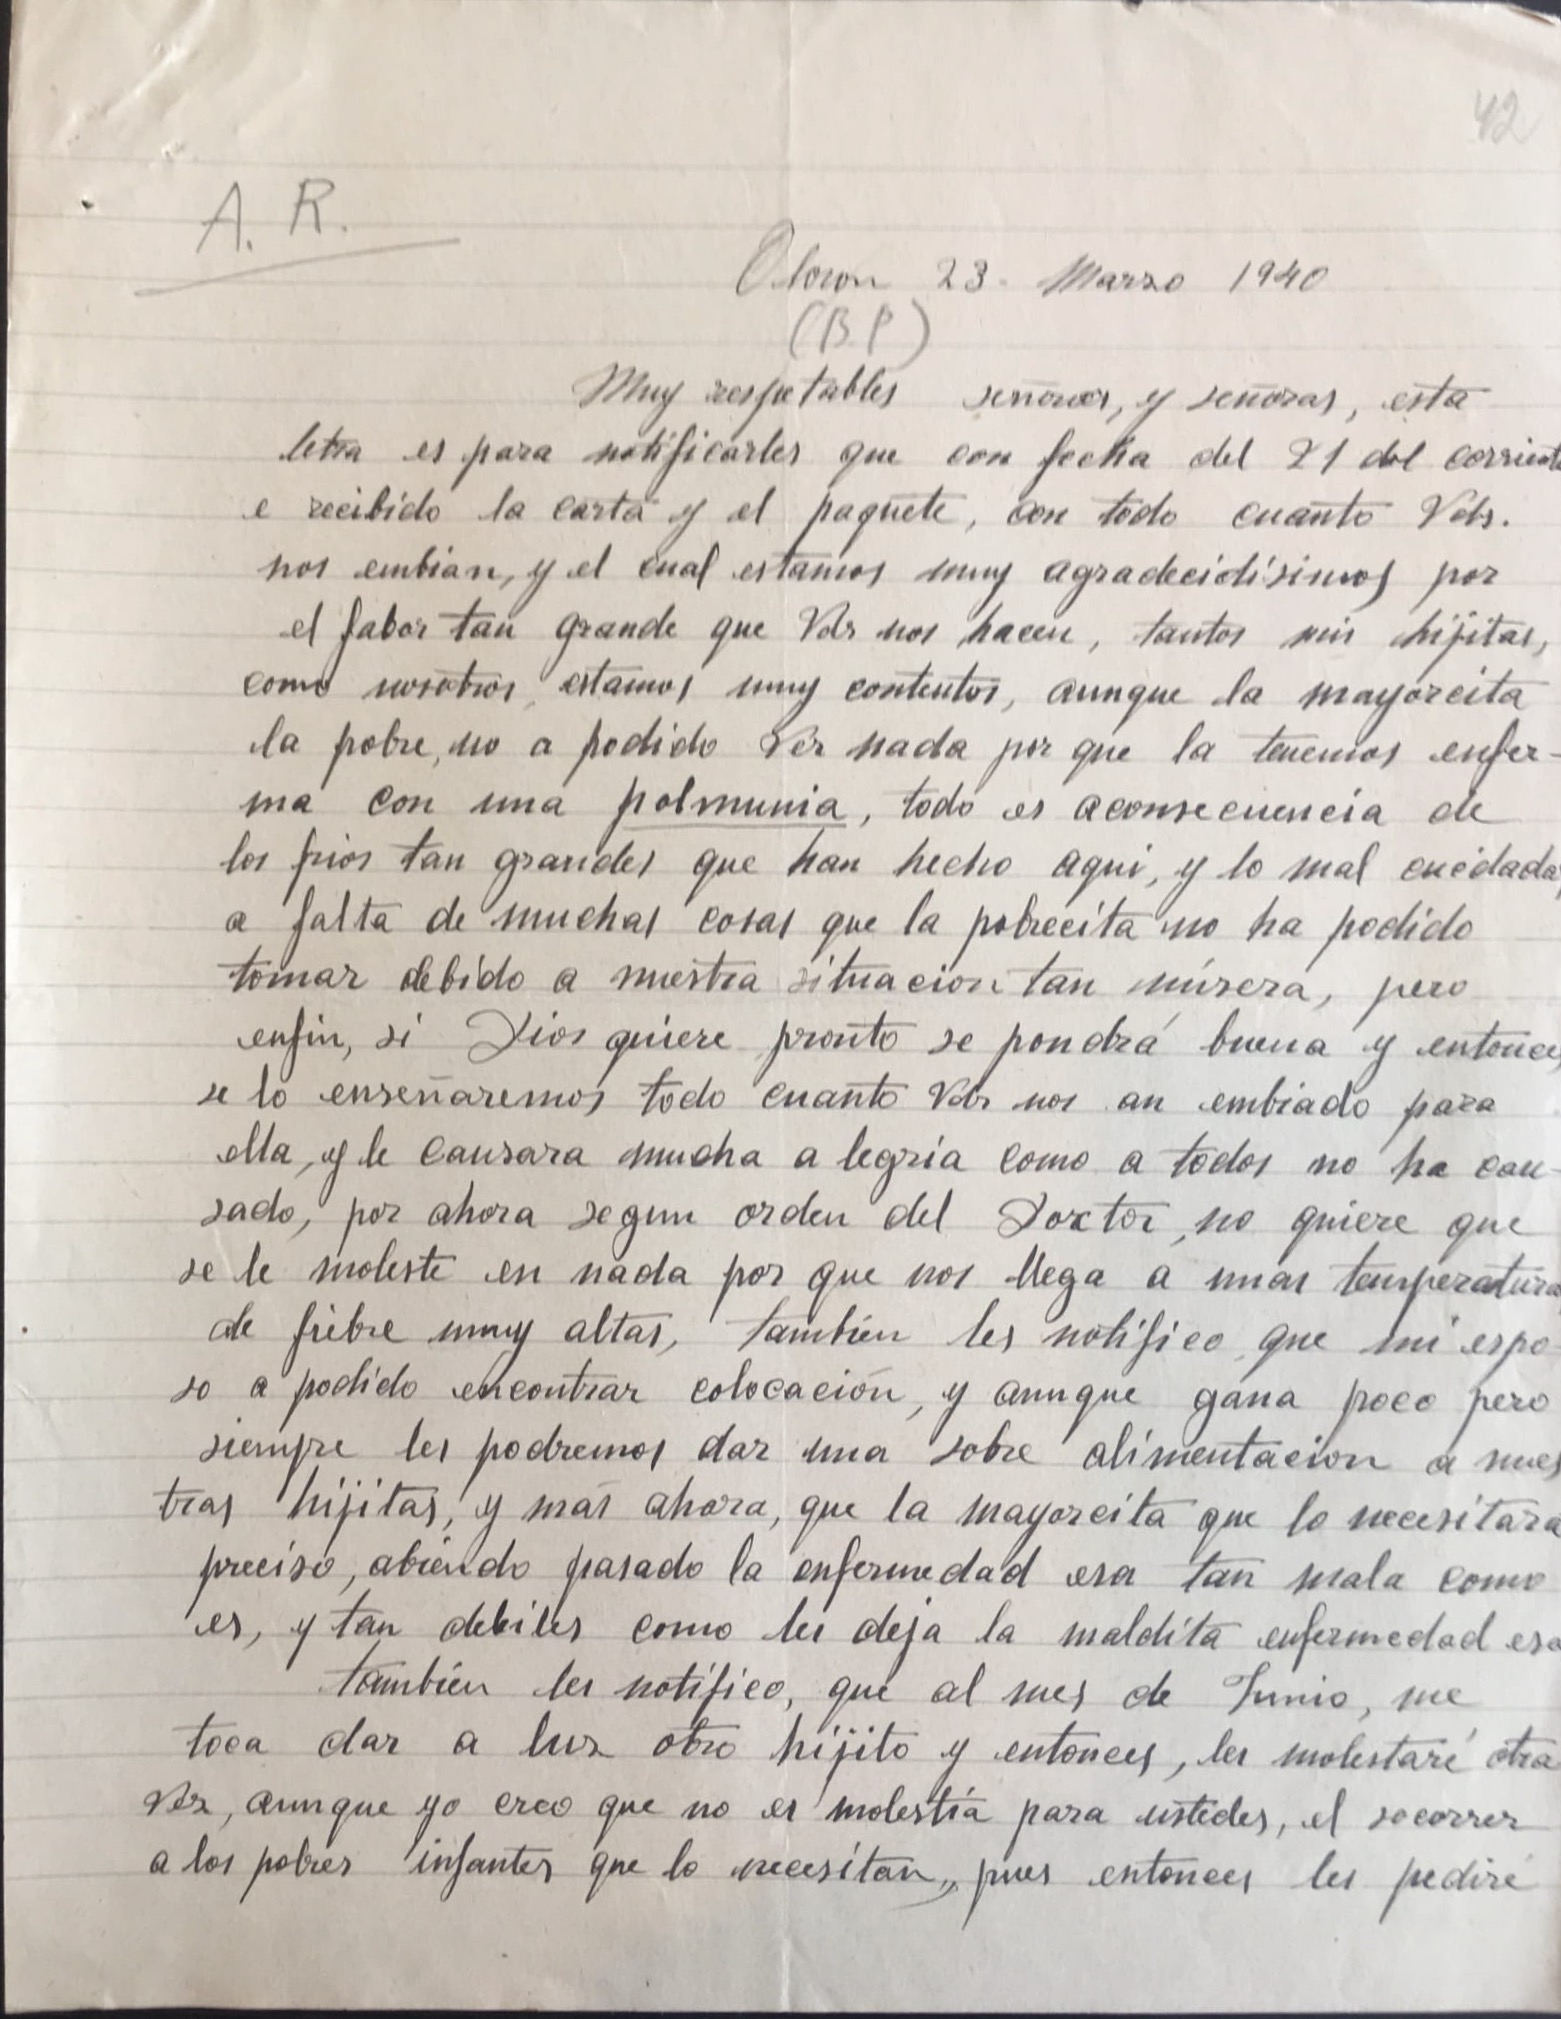 42
A. R.
Oloron 23. Marzo 1940
(B P)
Muy respetables señores, y señoras, esta
letra es para notificarles que con fecha del 21 del corriente
e recibido la carta y el paquete, con todo cuanto Vds.
nos embian, y el cual estamos muy agradecidisimos por
el fabor tan grande que Vds nos hacen, tantos mis hijitas,
como nosotros, estamos muy contentos, aunque la mayorcita
la pobre, no a podido Ver nada por que la tenemos enfer-
ma con una polmunia, todo es aconsecuencia de
los frios tan grandes que han hecho aqui, y lo mal cuidada,
a falta de muchas cosas que la pobrecita no ha podido
tomar debido a nuestra situacion tan misera, pero
enfin, si Dios quiere pronto se pondrá buena y entonces
se lo enseñaremos todo cuanto Vds nos an embiado para
ella, y le causara mucha a legria como a todos no ha cau-
sado, por ahora segun orden del Doctor, no quiere que
se le moleste en nada por que nos llega a unas temperatura
de fiebre muy altas, también les notifico que mi espo-
so a podido encontrar colocación, y aunque gana poco pero
siempre les podremos dar una sobre alimentacion a nues
tras hijitas, y más ahora, que la mayorcita que lo necesitara
preciso, abiendo pasado la enfermedad esa tan mala como
es, y tan debiles como les deja la maldita enfermedad esa
también les notifico, que al mes de Junio, me
toca dar a luz otro hijito y entonces, les molestaré otra
Vez, aunque yo creo que no es molestia para ustedes, el socorrer
a los pobres infantes que lo necesitan, pues entonces les pediré